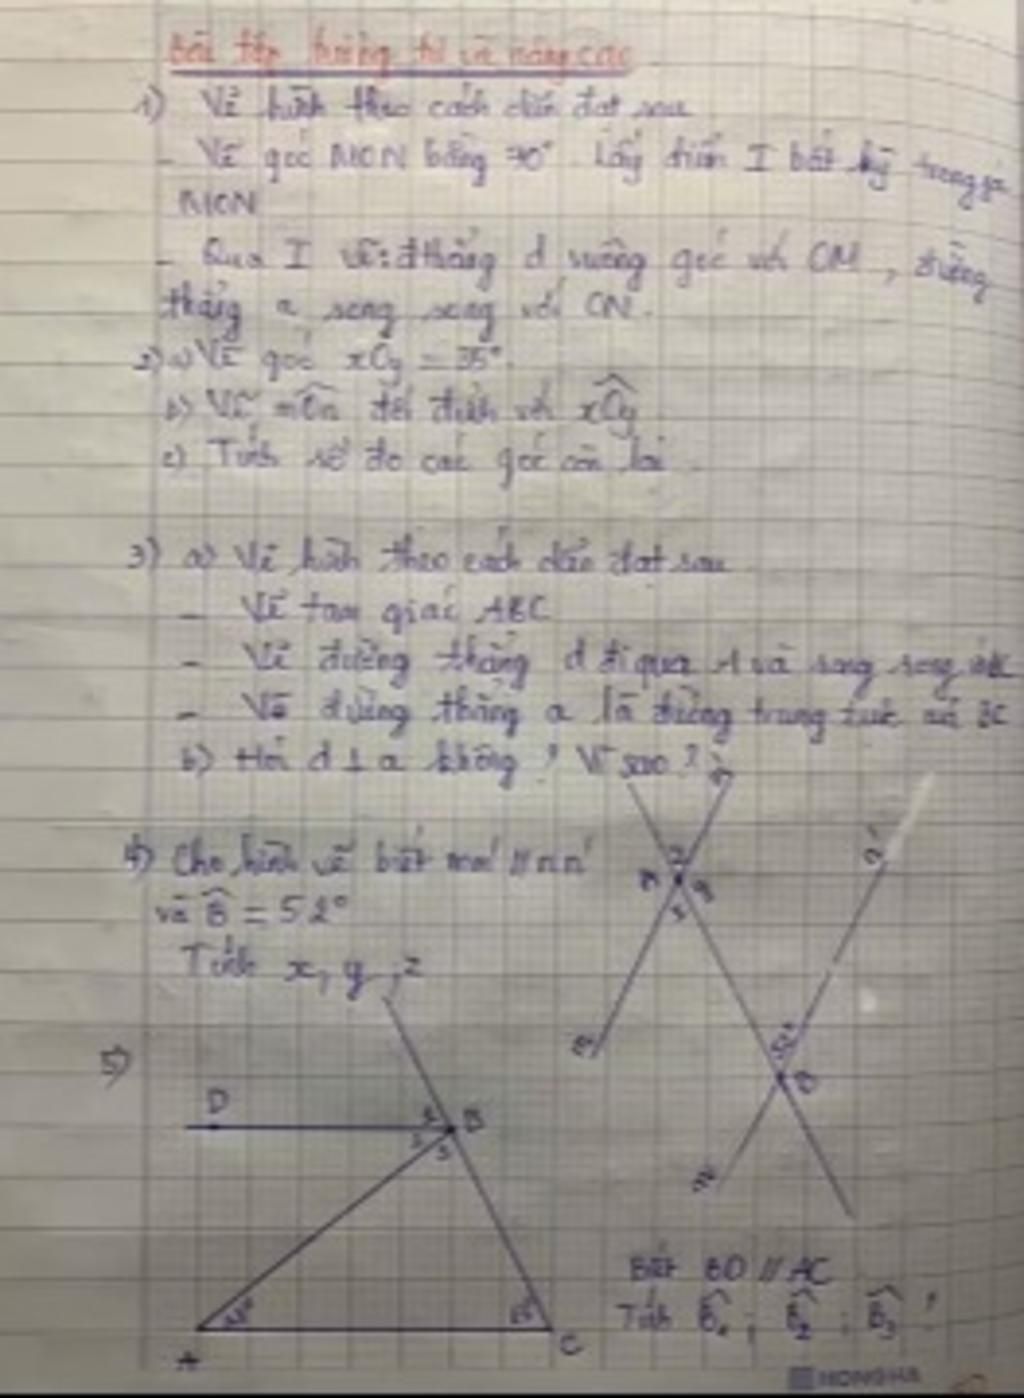 Bài tập tương tự và nâng cao
1) Vẽ hình theo cách diễn đạt sau
- Vẽ góc MON bằng 70° Lấy điểm I bất kỳ trong góc
MON
- Qua I vẽ: đ thẳng d vuông góc với OM, đường
thẳng a song song với ON.
2) a) Vẽ góc xOy = 35°.
b) Vẽ mOn đối đỉnh với xOy
c) Tính số đo các góc còn lại
3) a) Vẽ hình theo cách diễn đạt sau
- Vẽ tam giác ABC
- Vẽ đường thẳng d đi qua A và song song BC
- Vẽ đường thẳng a là đường trung trực của BC
b) Hỏi d ⊥ a không? Vì sao?
4) Cho hình vẽ biết mm' // nn'
và B = 52°
Tính x, y, z
m
n'
52°
B
5)
D
B
A
C
Biết BD // AC
Tính B1; B2; B3?
HONGHA